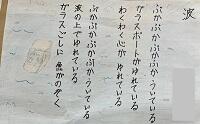 波
ぷかぷかぷかぷかういている
ガラスボートがゆれている
わくわく心がゆれている
ぷかぷかぷかぷかういている
波の上でゆれている
ガラスごしに魚がのぞく